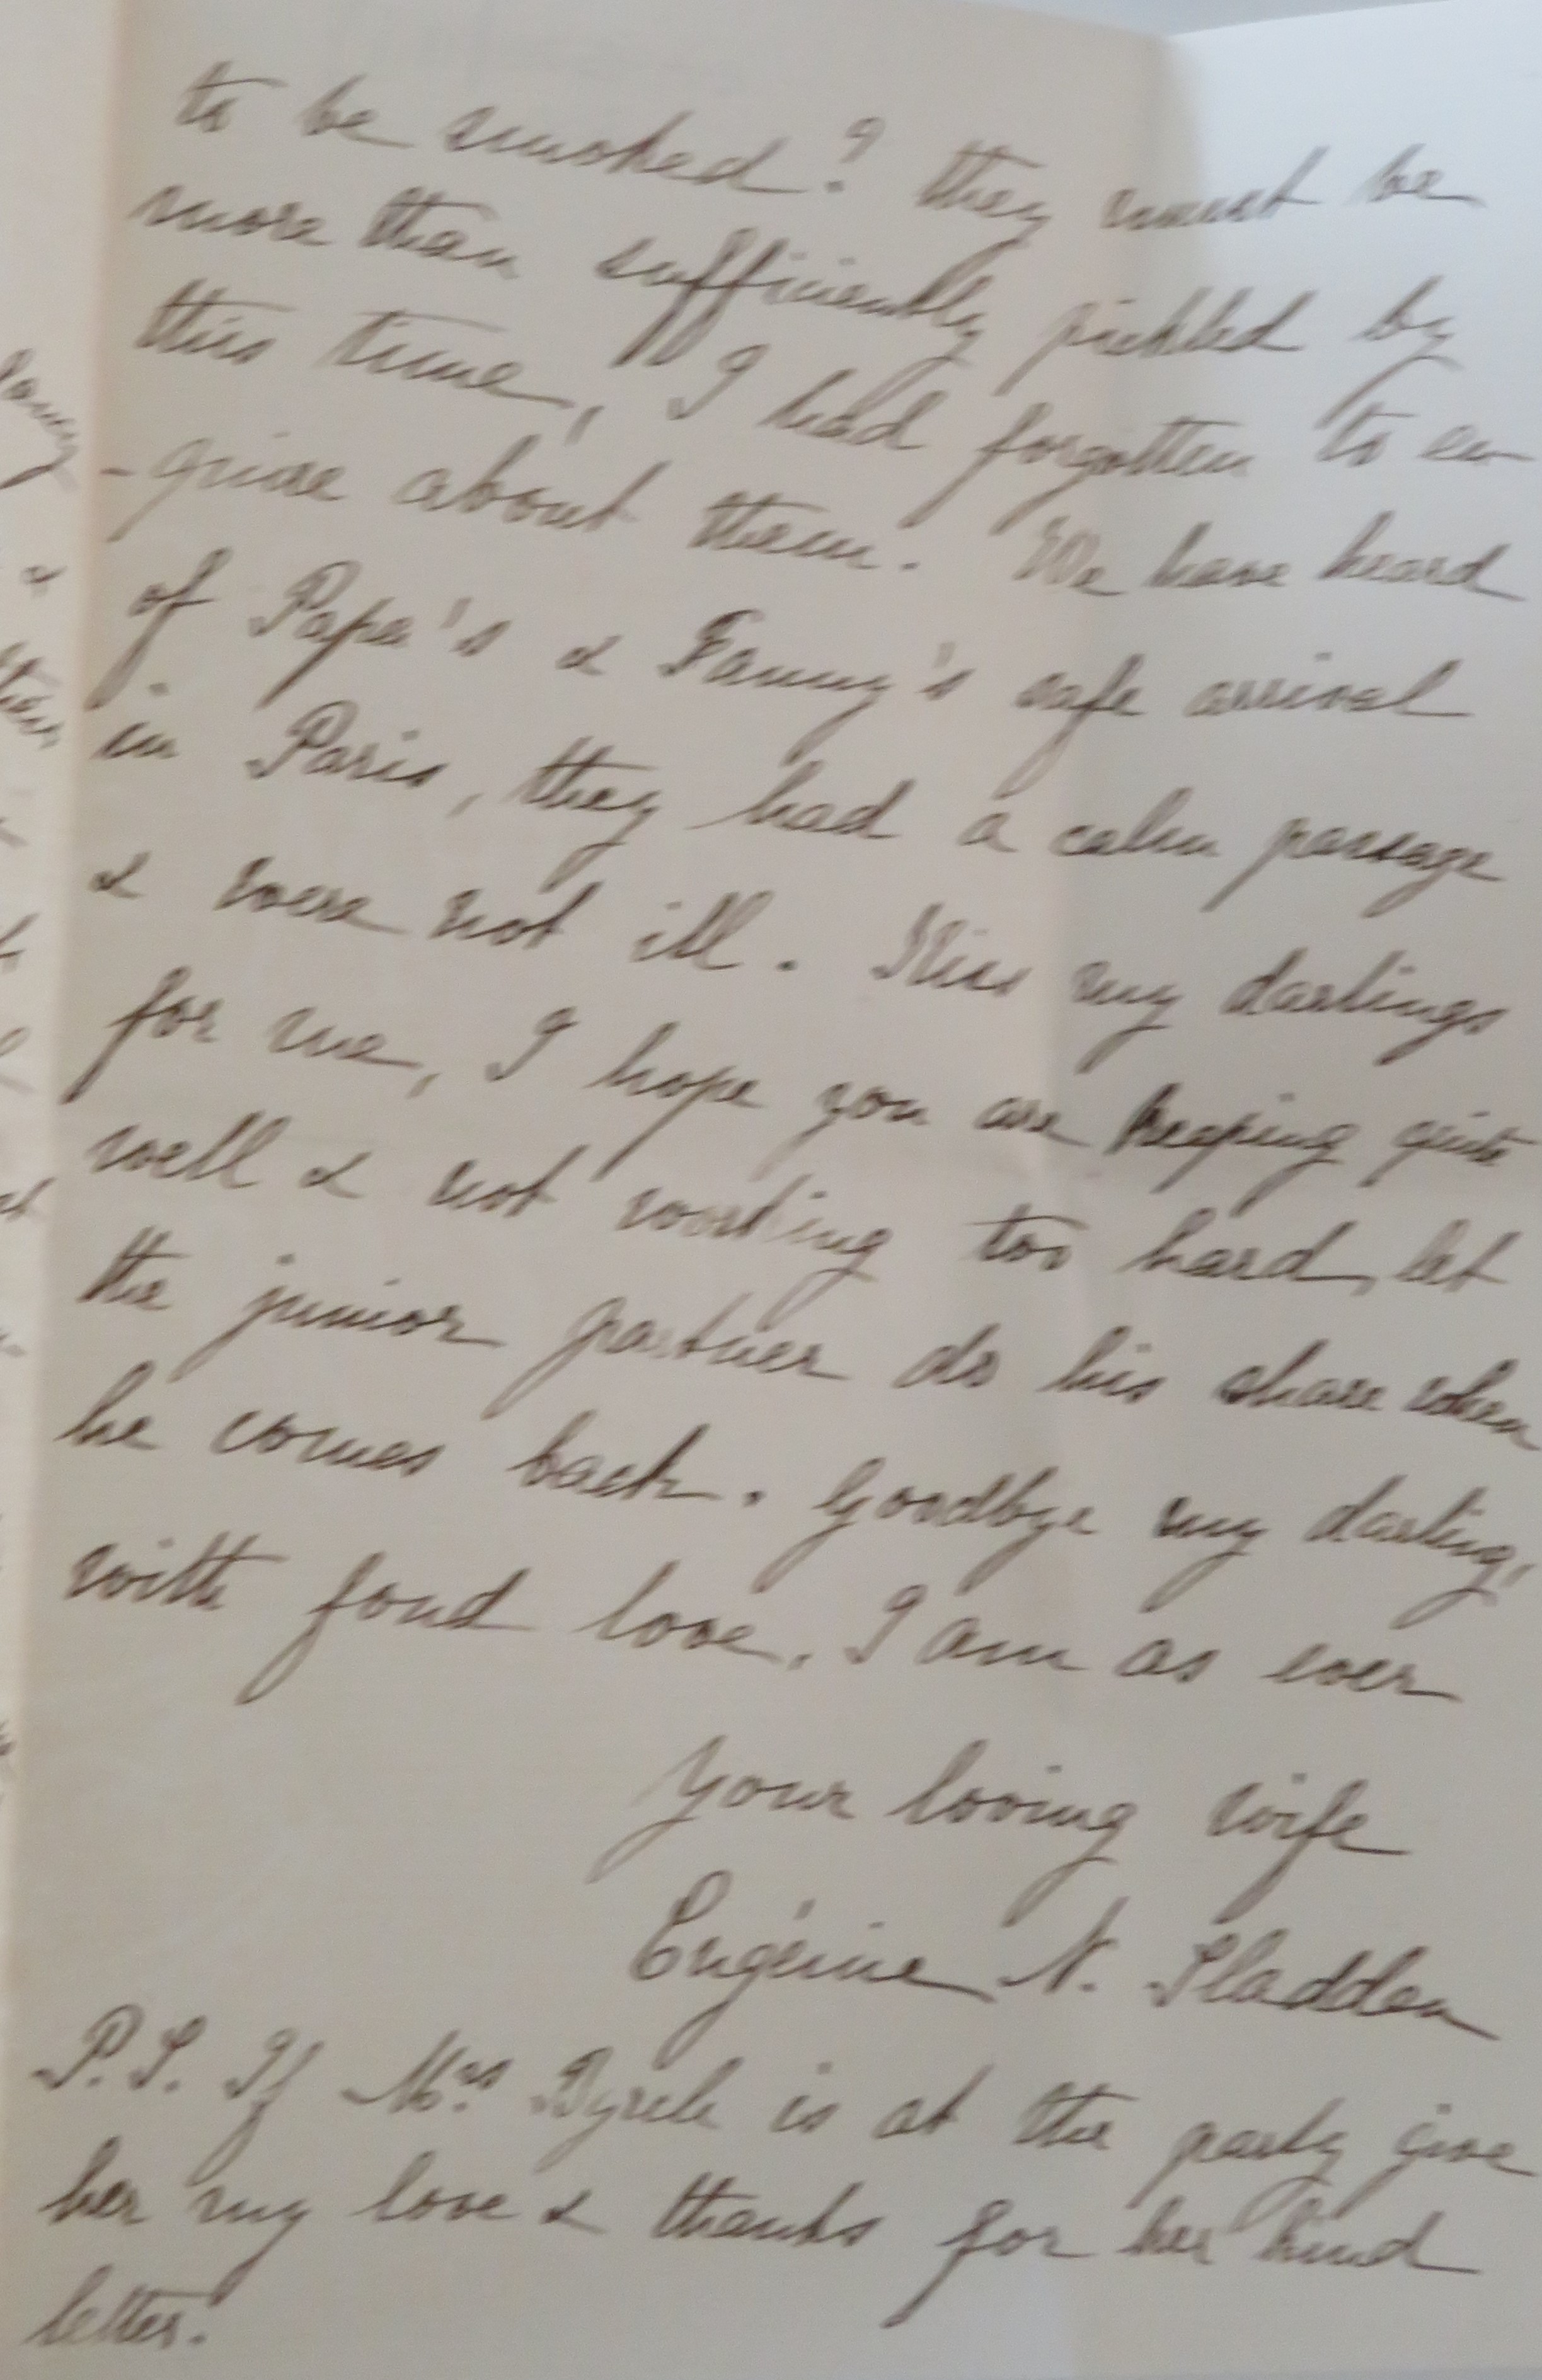 to be smoked? they must be
more than sufficiently pickled by
this time, I had forgotten to en
-quire about them. We have heard
of Papa's & Fanny's safe arrival
in Paris, they had a calm passage
& were not ill. Kiss my darlings
for me, I hope you are keeping quite
well & not working too hard, let
the junior partner do his share when
he comes back. Goodbye my darling,
with fond love, I am as ever
your loving wife
Eugénie N. Sladden
P.S. If Mrs is at the party give
her my love & thanks for her kind
letter.